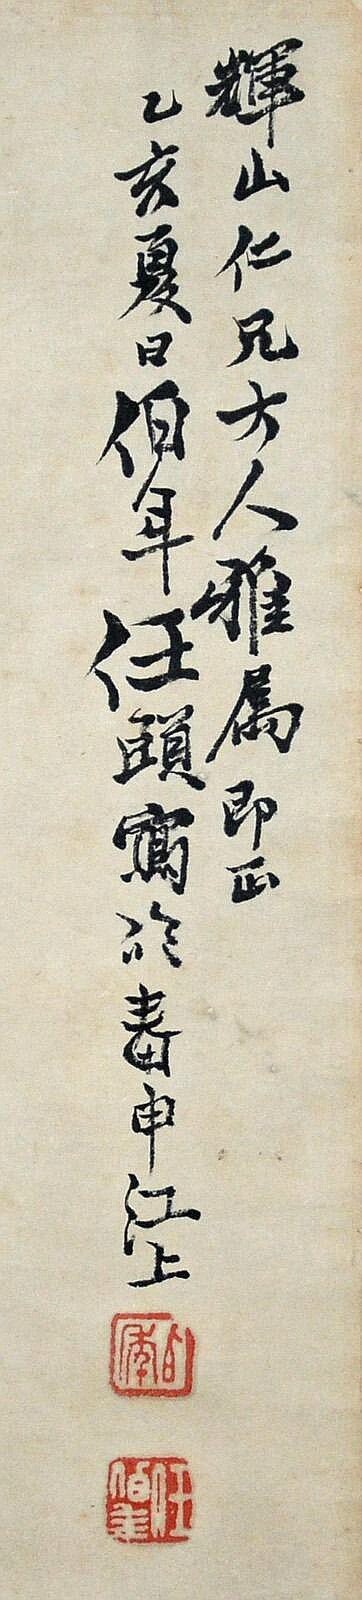 輝山仁兄大人雅属即正
乙亥夏日伯年任頤寫於春申江上
任伯年